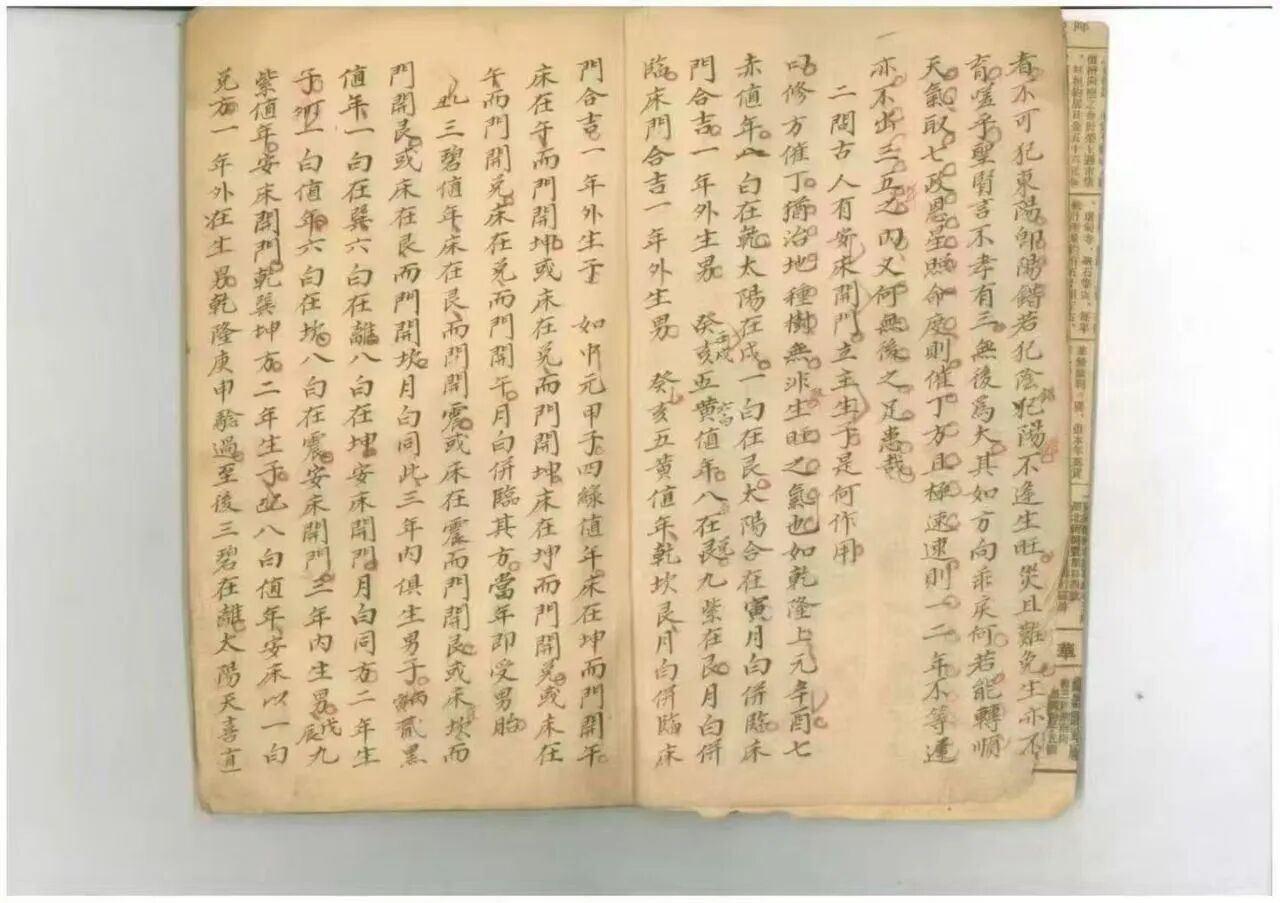 者不可犯東陽卽陽錯若犯陰犯陽不逢生旺災且難免生亦不
育嗟乎聖賢言不孝有三無後爲大其如方向乖戾何若能轉順
天氣取七政恩星照命庭則催丁方且極速速則一二年不等遲
亦不出三五之內又何無後之足患哉
二問古人有安床開門立主生子是何作用
修方催丁猶治地種樹無非生旺之氣也如乾隆上元辛酉七
赤值年八白在乾太陽在戌一白在艮太陽合在寅月白併臨床
門合吉一年外生男 癸亥五黃值年八在艮九紫在艮月白併
壬戌 六白
臨床門合吉一年外生男 癸亥五黃值年乾坎艮月白併臨床
門合吉一年外生子 如中元甲子四綠值年床在坤而門開午
床在午而門開坤或床在兑而門開坤床在坤而門開兑或床在
午而門開兑床在兑而門開午月白併臨其方當年即受男胎
乙丑三碧值年床在艮而門開震或床在震而門開艮或床坎而
門開艮或床在艮而門開坎月白同此三年內俱生男子丙寅貳黑
值年一白在巽六白在離八白在坤安床開門月白同方二年生
子丁卯一白值年六白在坎八白在震安床開門三年內生男戊辰九
紫值年安床開門乾巽坤方二年生子己巳八白值年安床以一白
兑方一年外在生男乾隆庚申驗過至後三碧在離太陽天喜直